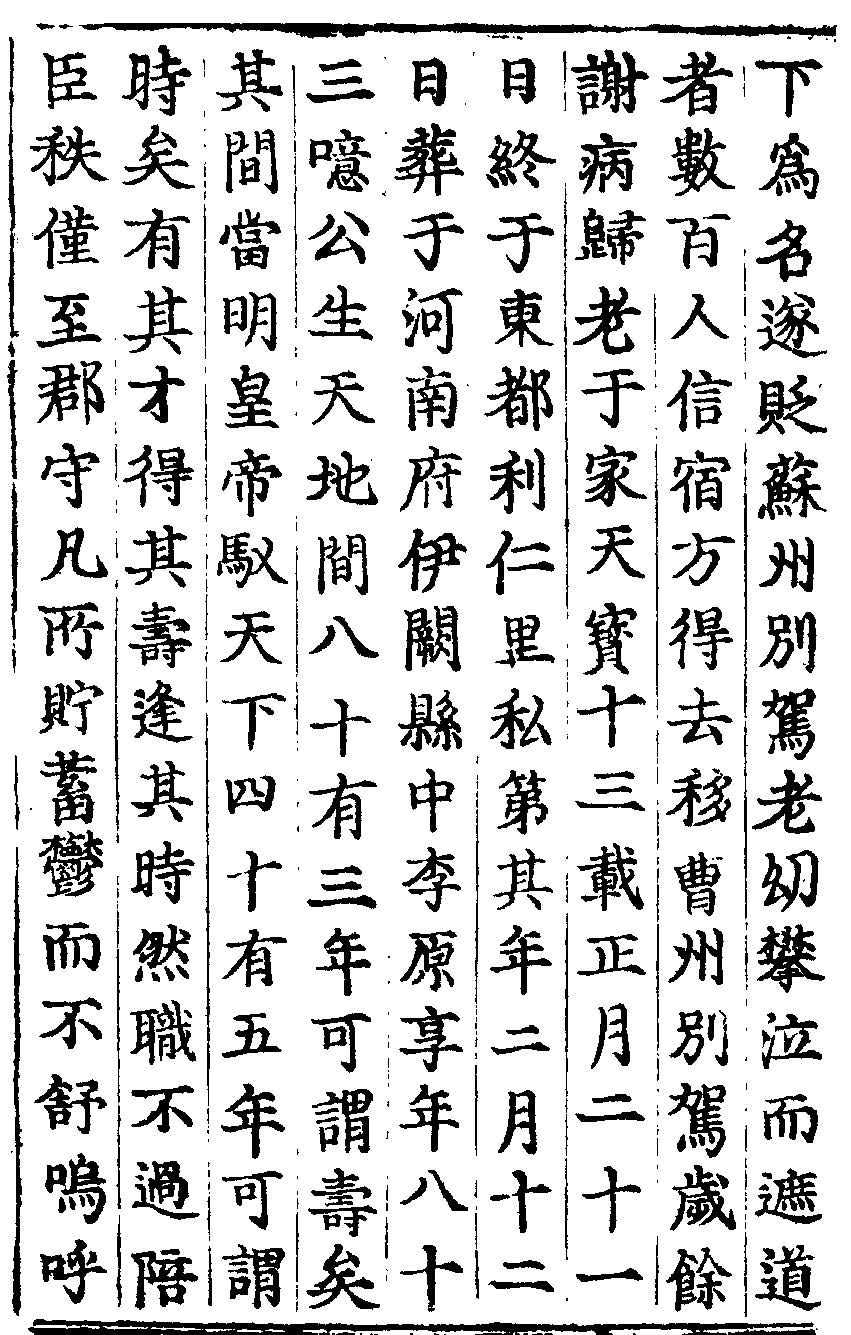 下爲名遂貶蘇州別駕老幼攀泣而遮道
者數百人信宿方得去移曹州別駕歲餘
謝病歸老于家天寶十三載正月二十一
日終于東都利仁里私第其年二月十二
日葬于河南府伊闕縣中李原享年八十
三噫公生天地間八十有三年可謂壽矣
其間當明皇帝馭天下四十有五年可謂
時矣有其才得其壽逢其時然職不過陪
臣秩僅至郡守凡所貯蓄鬱而不舒嗚呼